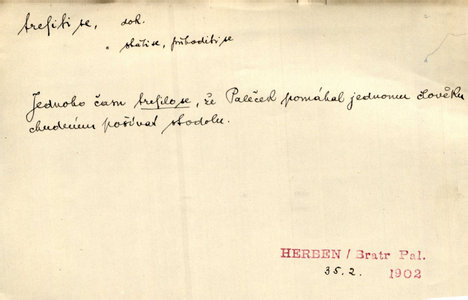 trefiti se, dok.
státi se, přihoditi se
Jednoho času trefilo se, že Paleček pomáhal jednomu člověku
chudému pošívat stodolu.
HERBEN / Bratr Pal.
35. 2. 1902